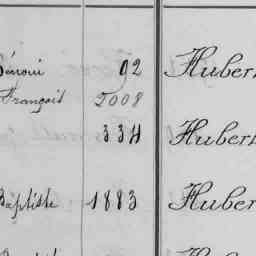 92 Huber
François 2008
334 Huber
Baptiste 1883 Huber